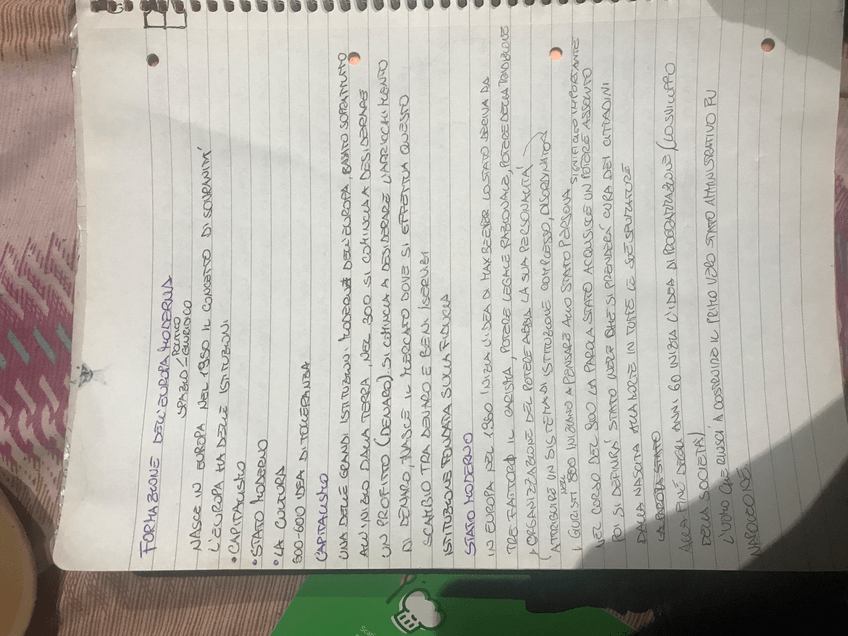 FORMAZIONE DELL'EUROPA MODERNA
SPAZIO - POLITICO GIURIDICO
NASCE IN EUROPA NEL 1350 IL CONCETTO DI SOVRANITÀ
L'EUROPA HA DELLE ISTITUZIONI
• CAPITALISMO
• STATO MODERNO
• LA CULTURA
500-600 IDEA DI TOLLERANZA
CAPITALISMO
UNA DELLE GRANDI ISTITUZIONI MODERNE DELL'EUROPA, BASATO SOPRATTUTTO
ALL'INIZIO DALLA TERRA, NEL 300 SI COMINCIA A DESIDERARE
UN PROFITTO (DENARO) SI COMINCIA A DESIDERARE L'ARRICCHIMENTO
DI DENARO, NASCE IL MERCATO DOVE SI EFFETTUA QUESTO
SCAMBIO TRA DENARO E BENI (SERVIZI
ISTITUZIONE FONDATA SULLA FIDUCIA
STATO MODERNO
IN EUROPA NEL 1350 INIZIA L'IDEA DI MAX WEBER LO STATO DERIVA DA
TRE FATTORI IL CARISMA, POTERE LEGALE RAZIONALE, POTERE DELLA TRADIZIONE
L'ORGANIZZAZIONE DEL POTERE ABBIA LA SUA PERSONALITÀ
(ATTRIBUIRE UN SISTEMA DI ISTITUZIONE COMPLESSO, DISORDINATO)
I GIURISTI NEL 800 INIZIANO A PENSARE ALLO STATO PERSONA SIGNIFICATO IMPORTANTE
NEL CORSO DEL 900 LA PAROLA STATO ACQUISISCE UN POTERE ASSOLUTO
POI SI DEFINIRÀ STATO WELFARE CHE SI PRENDERÀ CURA DEI CITTADINI
DALLA NASCITA ALLA MORTE IN TUTTE LE SUE SFUMATURE
LA PAROLA STATO
ALLA FINE DEGLI ANNI 60 INIZIA L'IDEA DI (LO SVILUPPO
DELLA SOCIETÀ)
L'UOMO CHE RIUSCÌ A COSTRUIRE IL PRIMO VERO STATO AMMINISTRATIVO FU
NAPOLEONE